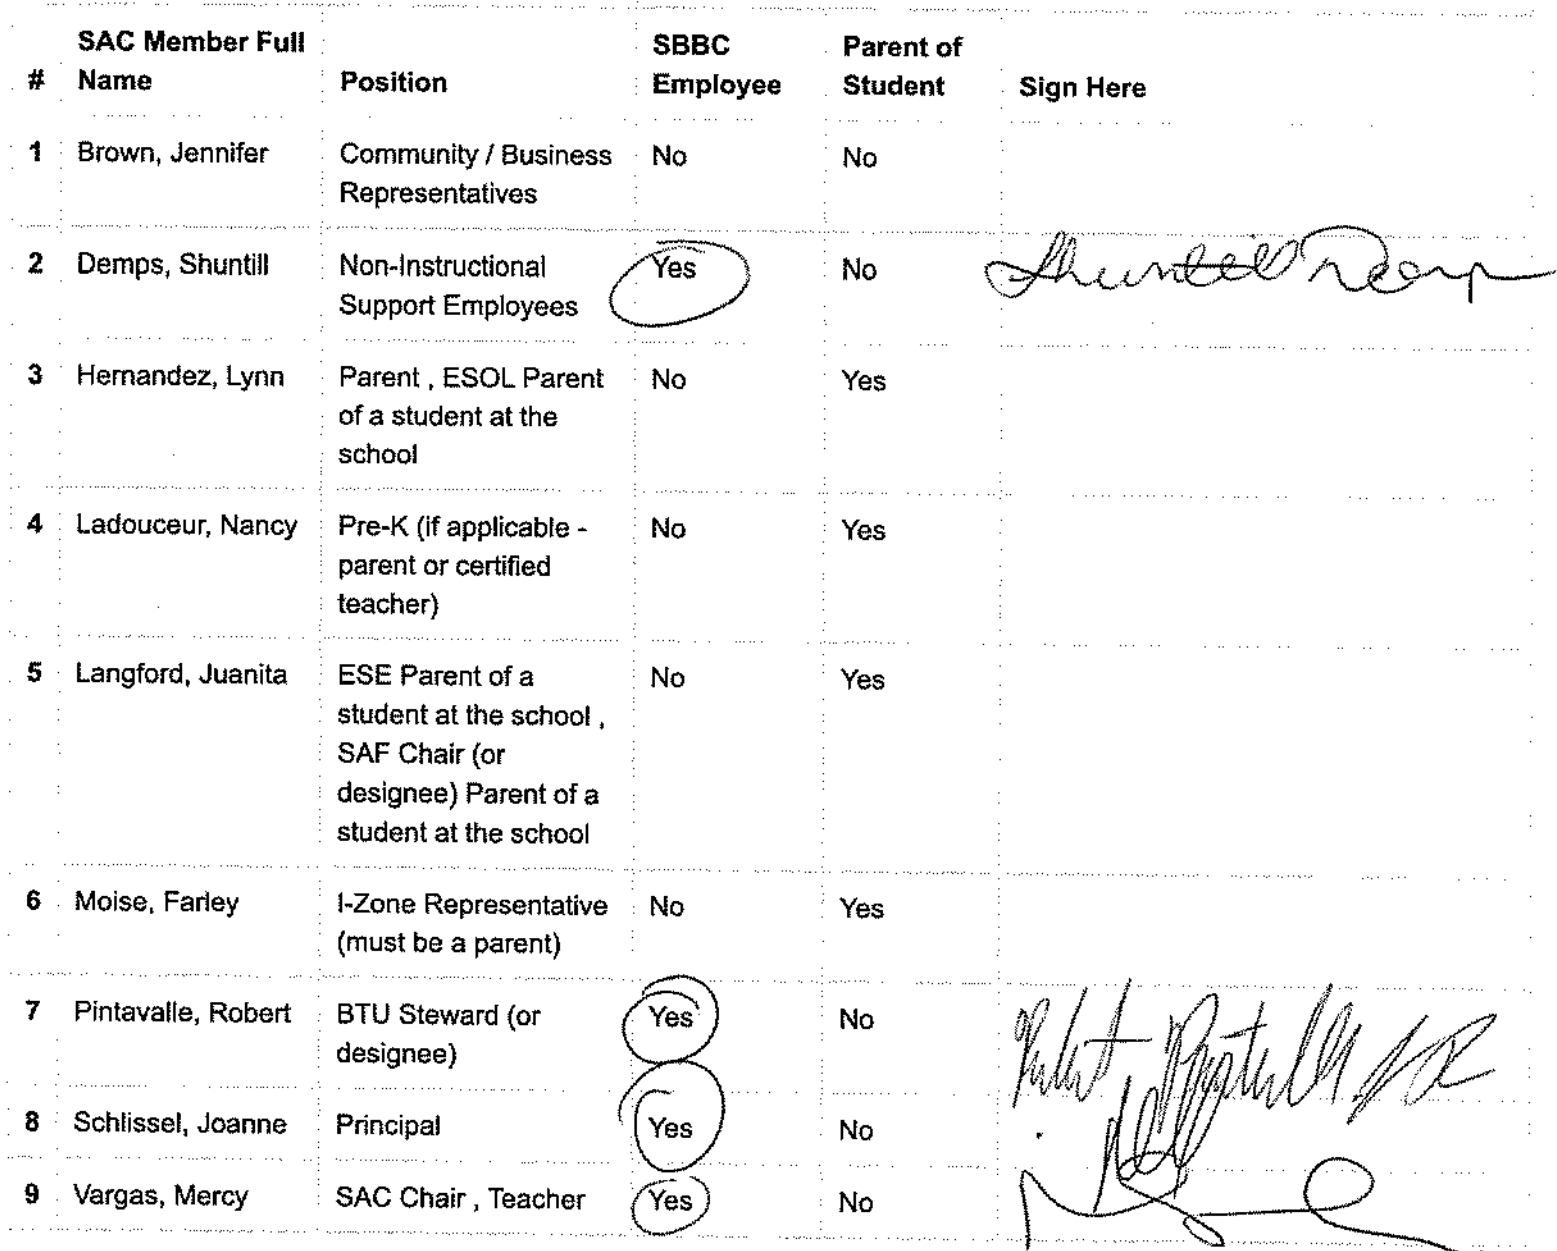 # SAC Member Full Name Position SBBC Employee Parent of Student Sign Here
1 Brown, Jennifer Community / Business Representatives No No
2 Demps, Shuntill Non-Instructional Support Employees Yes No Shuntill Demps
3 Hernandez, Lynn Parent , ESOL Parent of a student at the school No Yes
4 Ladouceur, Nancy Pre-K (if applicable - parent or certified teacher) No Yes
5 Langford, Juanita ESE Parent of a student at the school , SAF Chair (or designee) Parent of a student at the school No Yes
6 Moise, Farley I-Zone Representative (must be a parent) No Yes
7 Pintavalle, Robert BTU Steward (or designee) Yes No
8 Schlissel, Joanne Principal Yes No
9 Vargas, Mercy SAC Chair , Teacher Yes No